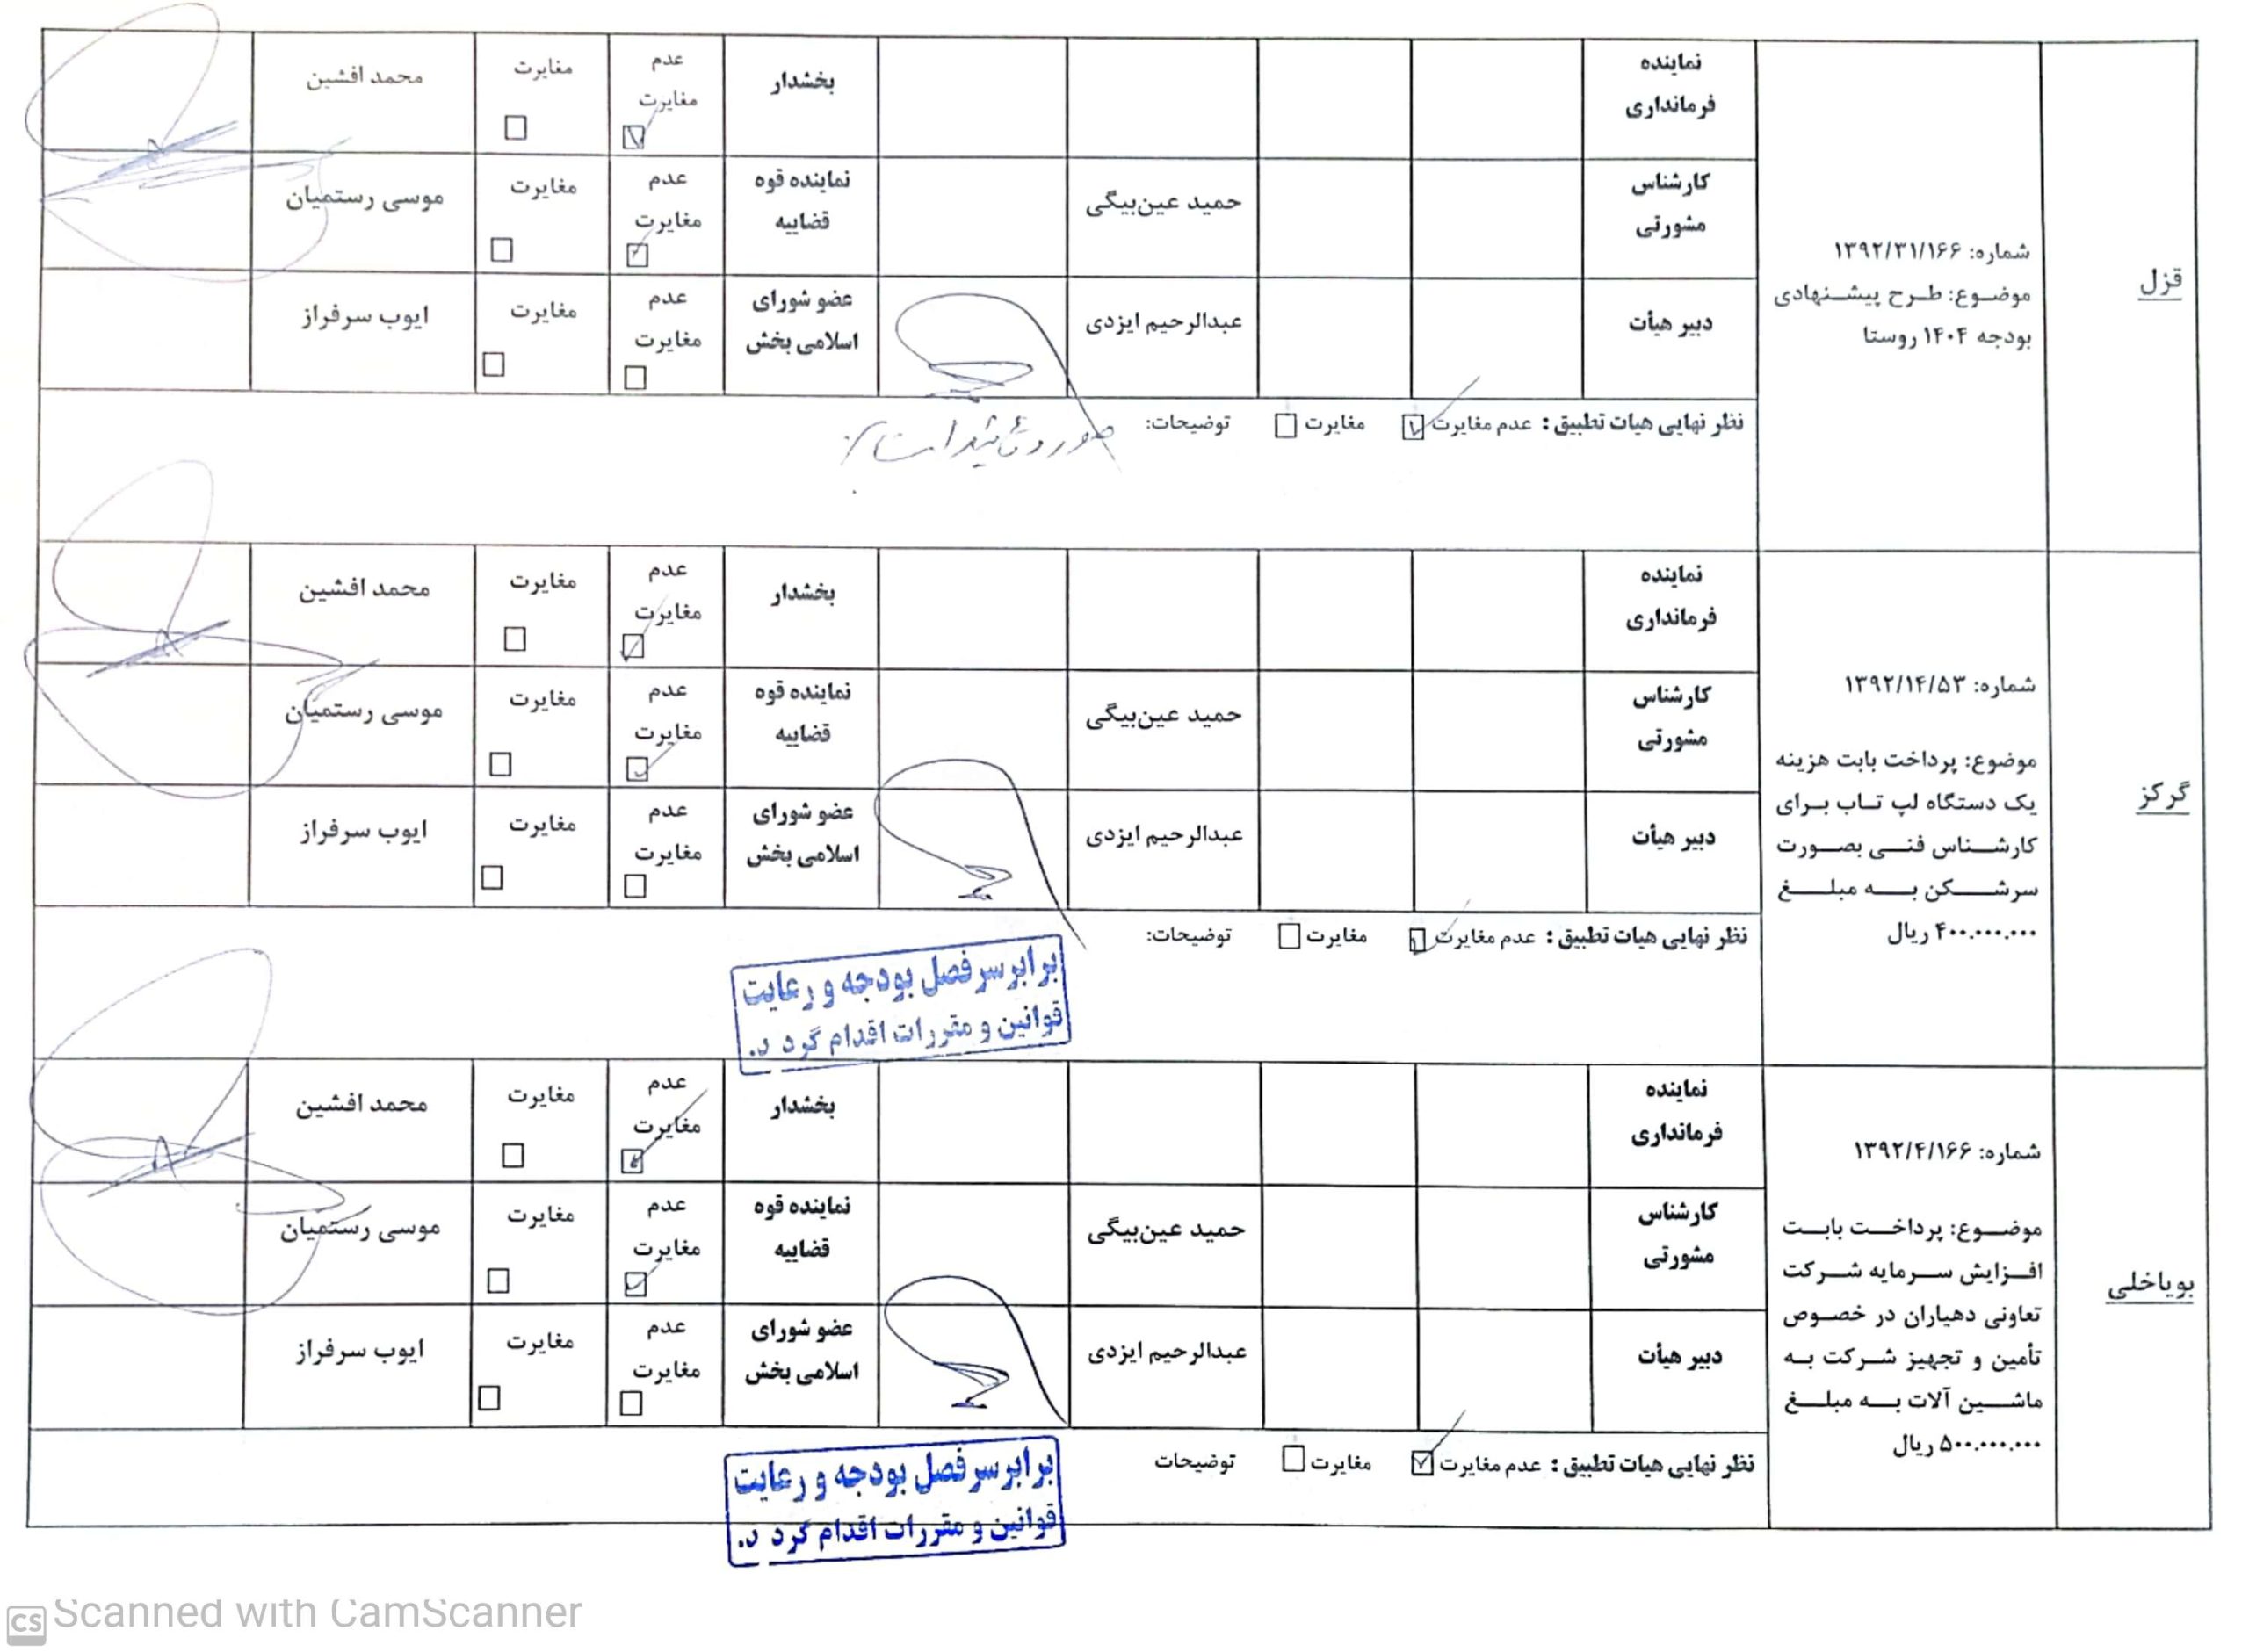 قزل
شماره: ۱۳۹۲/۳۱/۱۶۶
موضوع: طرح پیشنهادی
بودجه ۱۴۰۴ روستا
نماینده
فرمانداری
بخشدار
عدم
مغایرت
مغایرت
محمد افشین
کارشناس
مشورتی
حمید عین‌بیگی
نماینده قوه
قضاییه
عدم
مغایرت
مغایرت
موسی رستمیان
دبیر هیأت
عبدالرحیم ایزدی
عضو شورای
اسلامی بخش
عدم
مغایرت
مغایرت
ایوب سرفراز
نظر نهایی هیات تطبیق: عدم مغایرت مغایرت توضیحات:
مورد تائید است
گرکز
شماره: ۱۳۹۲/۱۴/۵۳
موضوع: پرداخت بابت هزینه
یک دستگاه لپ تاب برای
کارشناس فنی بصورت
سرشکن به مبلغ
۴۰۰.۰۰۰.۰۰۰ ریال
نماینده
فرمانداری
بخشدار
عدم
مغایرت
مغایرت
محمد افشین
کارشناس
مشورتی
حمید عین‌بیگی
نماینده قوه
قضاییه
عدم
مغایرت
مغایرت
موسی رستمیان
دبیر هیأت
عبدالرحیم ایزدی
عضو شورای
اسلامی بخش
عدم
مغایرت
مغایرت
ایوب سرفراز
نظر نهایی هیات تطبیق: عدم مغایرت مغایرت توضیحات:
برابر سرفصل بودجه و رعایت
قوانین و مقررات اقدام گردد.
بویاخلی
شماره: ۱۳۹۲/۴/۱۶۶
موضوع: پرداخت بابت
افزایش سرمایه شرکت
تعاونی دهیاران در خصوص
تأمین و تجهیز شرکت به
ماشین آلات به مبلغ
۵۰۰.۰۰۰.۰۰۰ ریال
نماینده
فرمانداری
بخشدار
عدم
مغایرت
مغایرت
محمد افشین
کارشناس
مشورتی
حمید عین‌بیگی
نماینده قوه
قضاییه
عدم
مغایرت
مغایرت
موسی رستمیان
دبیر هیأت
عبدالرحیم ایزدی
عضو شورای
اسلامی بخش
عدم
مغایرت
مغایرت
ایوب سرفراز
نظر نهایی هیات تطبیق: عدم مغایرت مغایرت توضیحات
برابر سرفصل بودجه و رعایت
قوانین و مقررات اقدام گردد.
CS Scanned with CamScanner